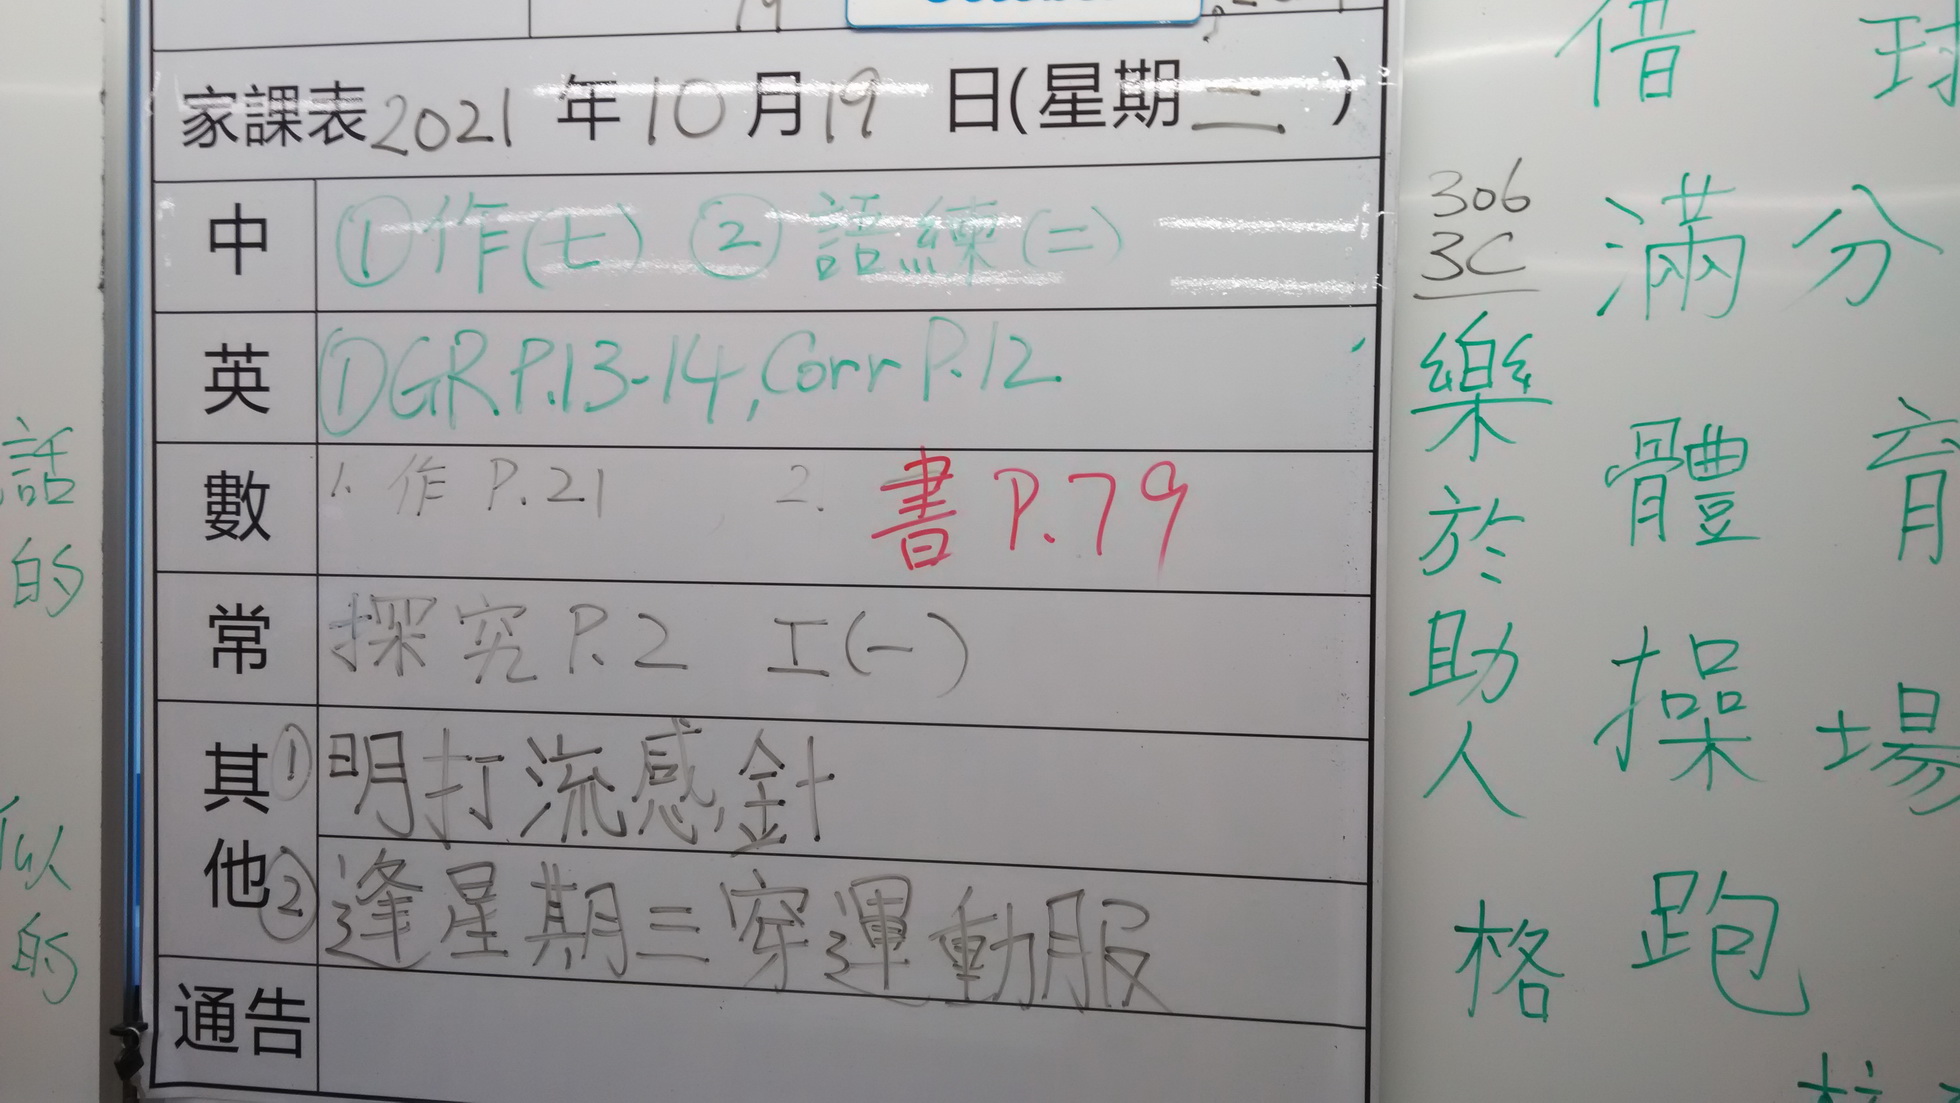 家課表 2021 年 10 月 19 日(星期二)
中 ①作(七) ②語練(二)
英 ①GR.P.13-14, Corr P.12
數 1. 作 P.21 2. 書 P.79
常 探究 P.2 工(一)
其他 ①明打流感針
②逢星期三穿運動服
通告
306
3C
樂於助人
格
借
滿體操跑
球
分育場
話的
似的